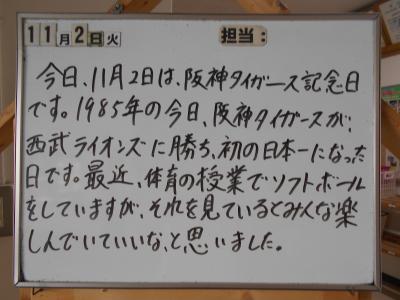 11月2日火 担当:
今日、11月2日は、阪神タイガース記念日
です。1985年の今日、阪神タイガースが、
西武ライオンズに勝ち、初の日本一になった
日です。最近、体育の授業でソフトボール
をしていますが、それを見ているとみんな楽
しんでいていいな、と思いました。